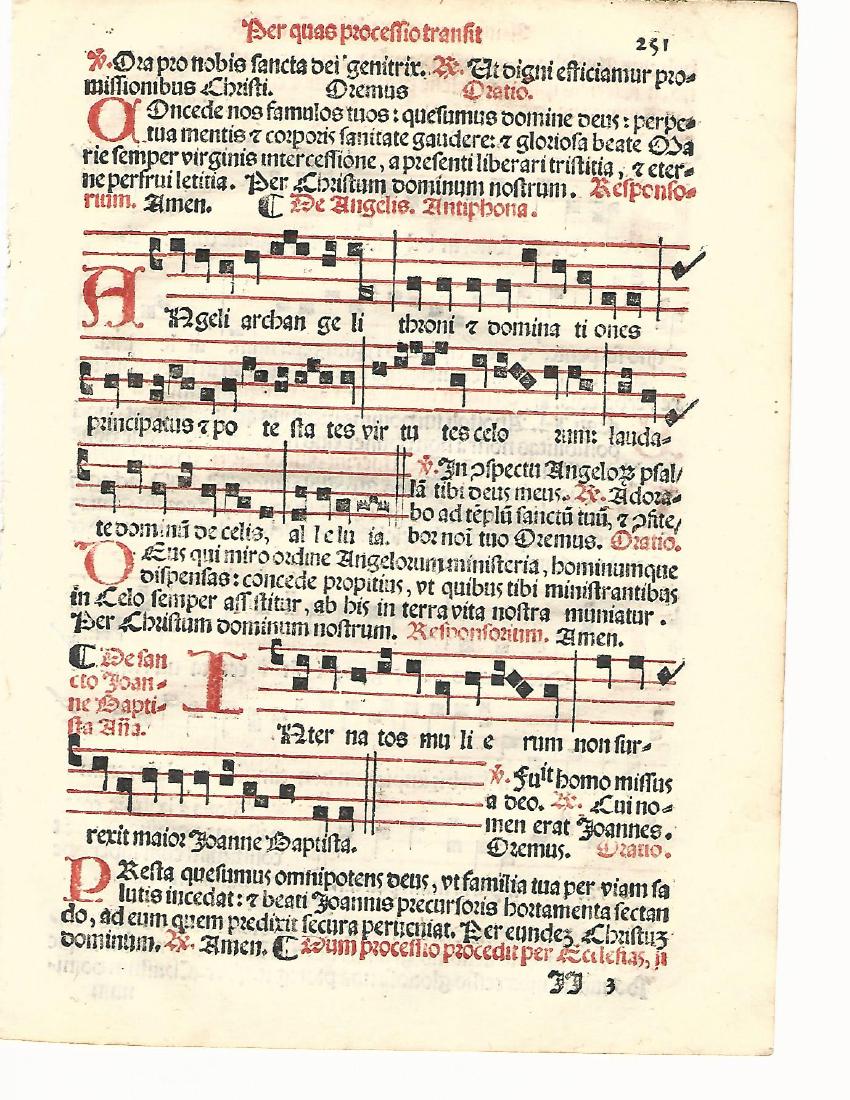 Per quas processio transit
251
℣. Ora pro nobis sancta dei genitrix. ℟. Ut digni efficiamur pro-
missionibus Christi. Oremus Oratio.
COncede nos famulos tuos : quesumus domine deus : perpe-
tua mentis ⁊ corporis sanitate gaudere: ⁊ gloriosa beate Ma
rie semper virginis intercessione, a presenti liberari tristitia, ⁊ eter-
ne perfrui letitia. Per Christum dominum nostrum. Responso-
rium. Amen. ⸿ De Angelis. Antiphona.
ANgeli archan ge li throni ⁊ domina ti ones
principatus ⁊ po te sta tes vir tu tes celo rum: lauda-
te dominū de celis, al le lu ia.
℣. In ↄspectu Angeloꝝ psal/
lā tibi deus meus. ℟. Adora-
bo ad tēplū sanctū tuū, ⁊ ↄfite/
bor noī tuo Oremus. Oratio.
DEus qui miro ordine Angelorum ministeria, hominumque
dispensas : concede propitius, vt quibus tibi ministrantibus
in Celo semper assistitur, ab his in terra vita nostra muniatur .
Per Christum dominum nostrum. Responsorium. Amen.
⸿ De san
cto Joan-
ne Bapti-
sta Añа.
INter na tos mu li e rum non sur-
rexit maior Joanne Baptista.
℣. Fuit homo missus
a deo. ℟. Cui no-
men erat Joannes.
Oremus. Oratio.
PResta quesumus omnipotens deus, vt familia tua per viam sa
lutis incedat: ⁊ beati Joannis precursoris hortamenta sectan
do, ad eum quem predixit secura perueniat. Per eundeꝫ Christuꝫ
dominum. ℟. Amen. ⸿ Dum processio procedit per Ecclesias, ii
II 3